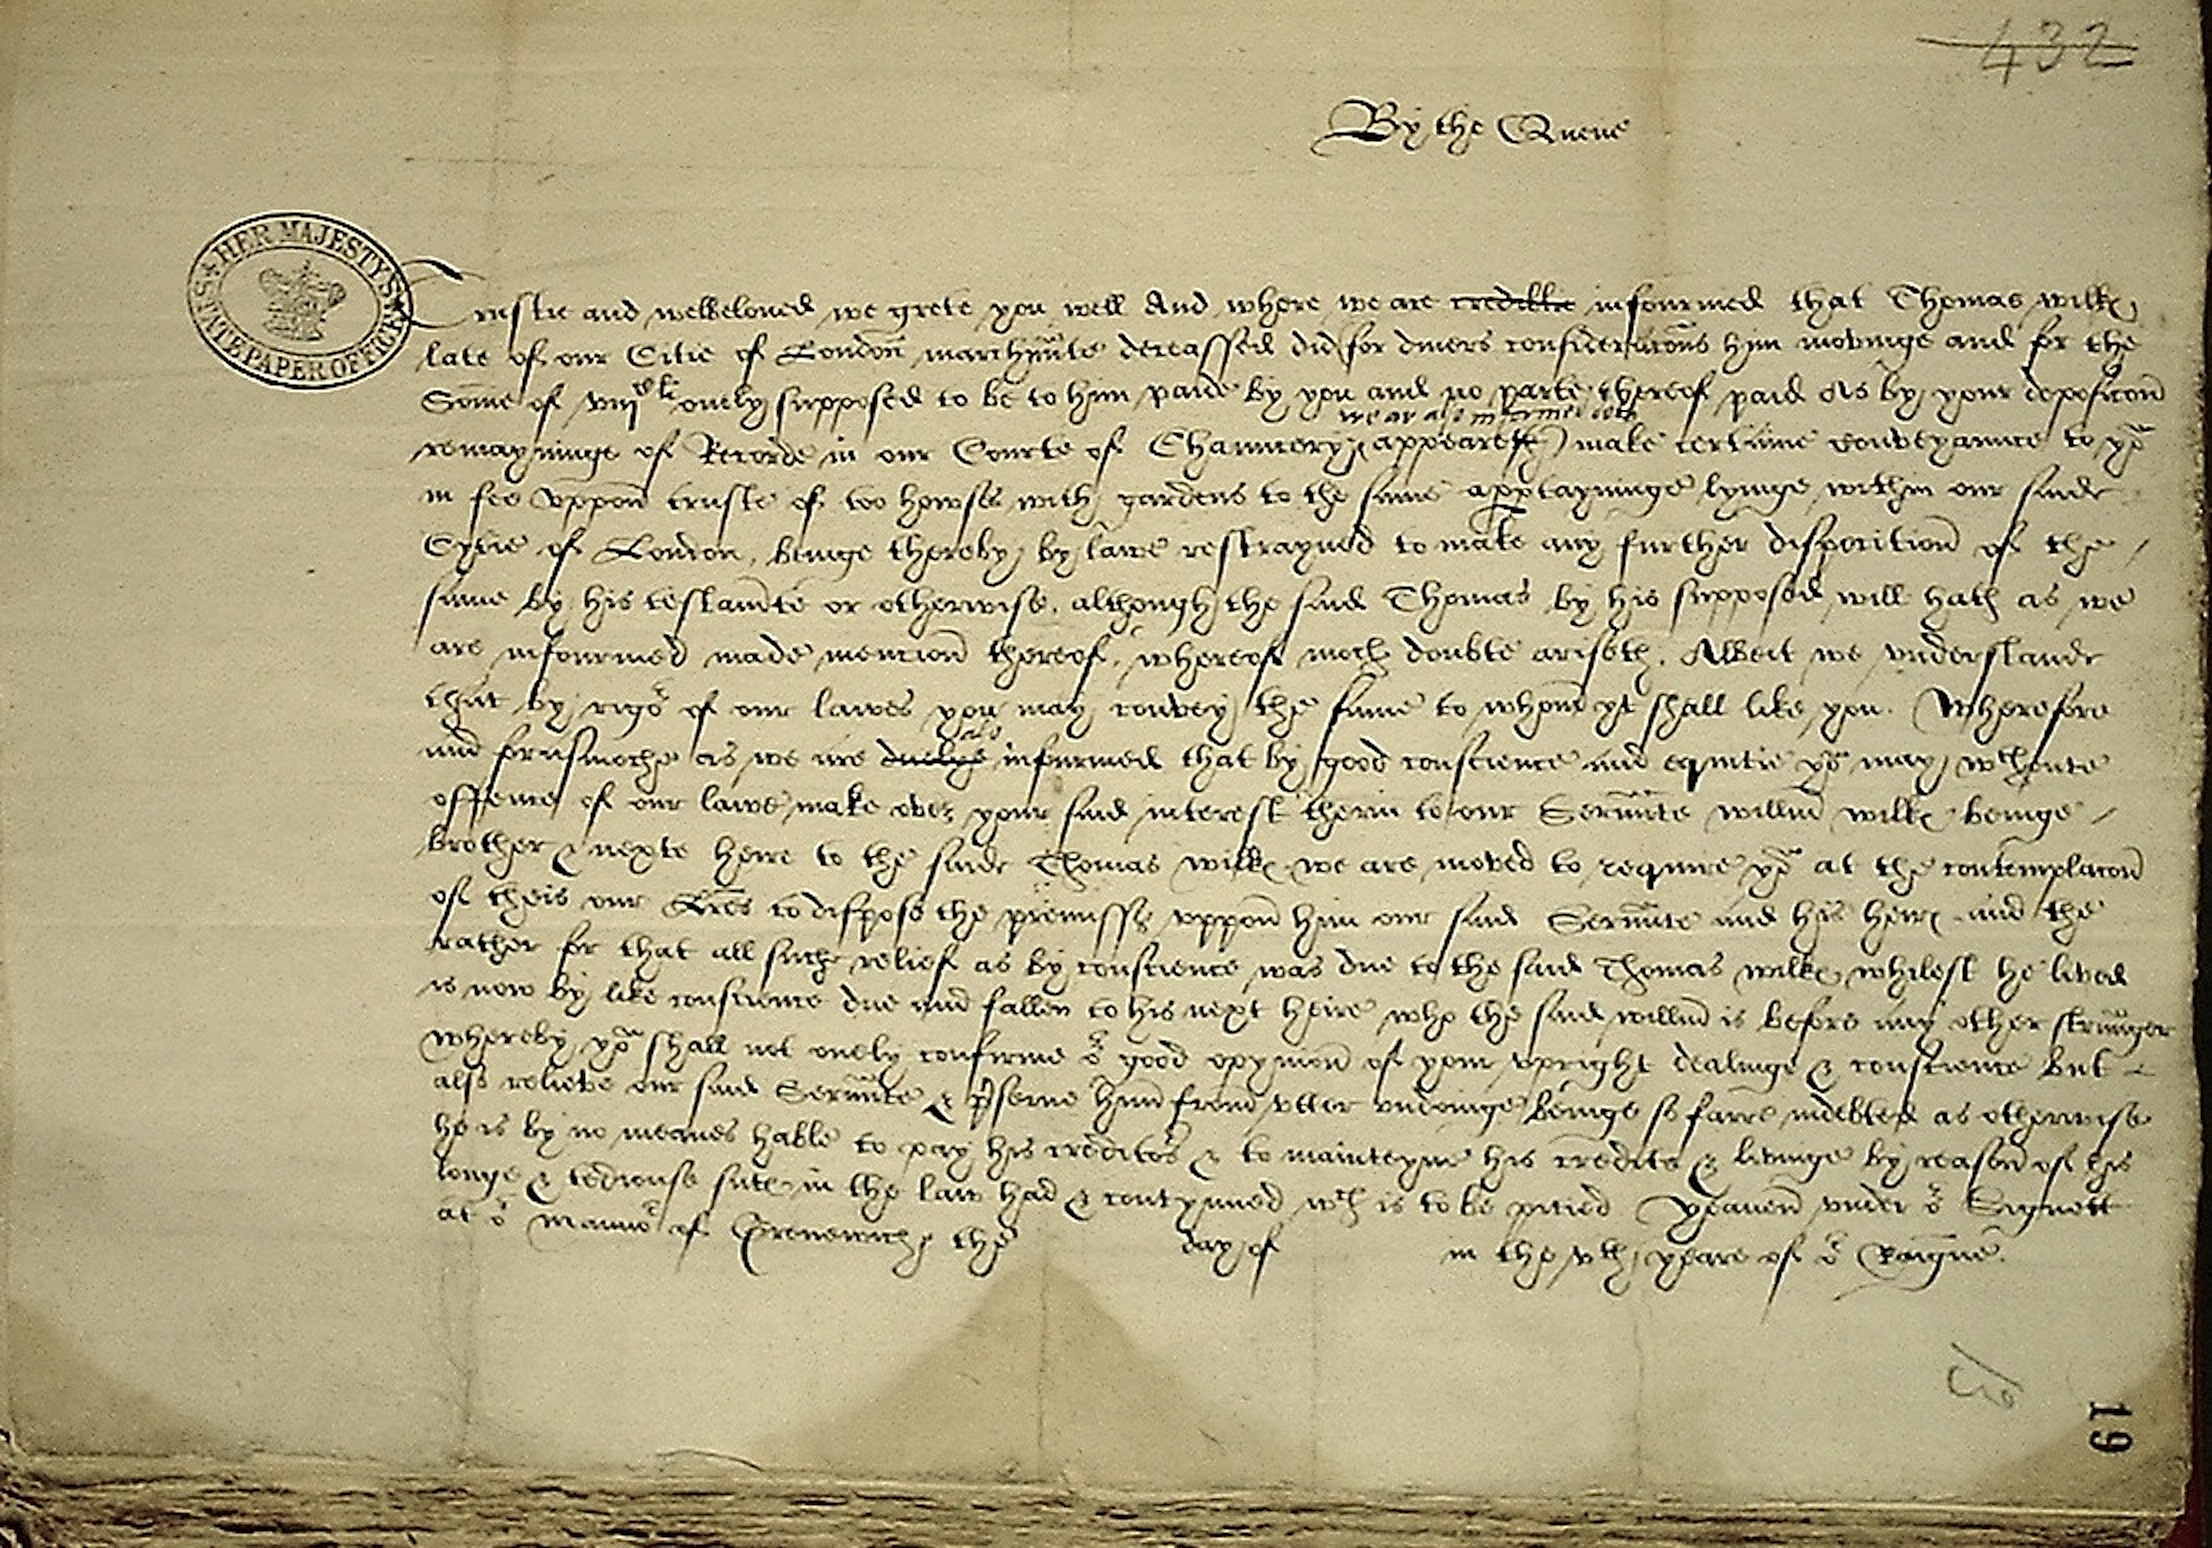 432
By the Quene
HER MAJESTY'S STATE PAPER OFFICE
Trustie and welbeloved we grete you well And where we are crediblie infourmed that Thomas wilk
late of our Citie of London marchunte deceassed did for divers consideracons him movinge and for the
Some of viijxx li onely supposed to be to him paide by you and no parte thereof paid As by your deposicon
we ar also informed doth
remayninge of Recorde in our Courte of Chauncery (appeareth) make certaine conveyaunce to you
in fee vppon truste of too howses with gardens to the same apptayninge lyinge within our saide
Cytie of London, beinge thereby by lawe restrayned to make any further disposition of the
same by his testamte or otherwise, although the said Thomas by his supposed will hath as we
are infourmed made mencion thereof, whereof moch doubte ariseth, Albeit we vnderstande
that by rigor of our lawes you may convey the same to whom yt shall like you. Wherefore
also
and forasmoche as we are infourmed that by good conscience and equitie you may wthoute
offence of our lawe make over your said interest therin to our Servunte willm wilk beinge
brother & nexte heire to the saide Thomas wilk we are moved to require you at the contemplacon
of theis our Lres to dispose the premisses vppon him our said Servunte and his heires and the
rather for that all suche relief as by conscience was due to the said Thomas wilk whilest he lived
is now by like conscience due and fallen to his next heire who the said willm is before any other straunger
whereby you shall not onely confirme or good opynion of your vpright dealinge & conscience but
also relieve our said Servunte & pserve him from vtter vndoinge beinge so farre indebted as otherwise
he is by no meanes hable to pay his creditors & to mainteyne his credite & livinge by reason of his
longe & tediouse sute in the law had & contynued wch is to be pitied Yeaven vnder or Signett
at or mannor of Grenewich the day of in the vth yeare of or Raigne.
19